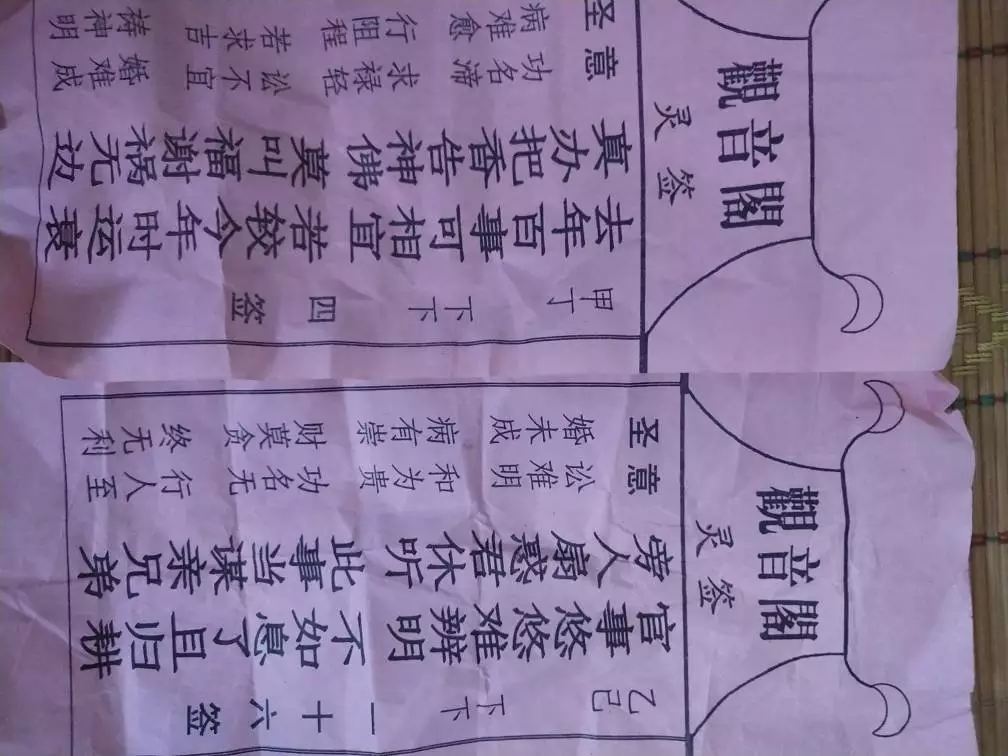 觀音閣
灵签
甲丁 下下 四签
去年百事可相宜 若较今年时运衰
真办把香告神佛 莫叫福谢祸无边
圣意
功名滞 求禄轻 讼不宜 婚难成
病难愈 行阻程 若求吉 祷神明
觀音閣
灵签
乙己 下下 一十六签
官事悠悠难辨明 不如息了且归耕
旁人扇惑君休听 此事当谋亲兄弟
圣意
讼难明 和为贵 功名无 行人至
婚未成 病有崇 财莫贪 终无利